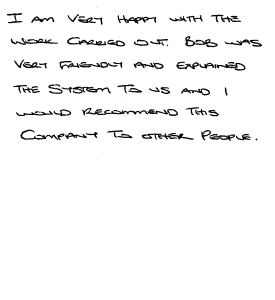 I AM VERY HAPPY WITH THE
WORK CARRIED OUT. BOB WAS
VERY FRIENDLY AND EXPLAINED
THE SYSTEM TO US AND I
WOULD RECOMMEND THIS
COMPANY TO OTHER PEOPLE.